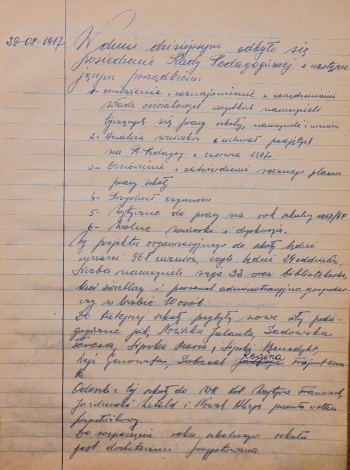 29-08-1967 W dniu dzisiejszym odbyło się
posiedzenie Rady Pedagogicznej z następu-
jącym porządkiem:
omówienie i zaznajomienie z zarządzeniami
władz oświatowych wszystkich nauczycieli
tyczących się pracy szkoły, nauczycieli i uczniów
2- Analiza wniosków i uchwał podjętych
na R. Pedagog z czerwca 1967
3- Omówienie i zatwierdzenie rocznego planu
pracy szkoły
4- Przydział czynności
5- Wytyczne do pracy na rok szkolny 1967/68
6- Wolne wnioski i dyskusja.
Wg projektu organizacyjnego do szkoły będzie
uczęszcz 968 uczniów, czyli będzie 29 oddziałów,
liczba nauczycieli 32 oraz bibliotekarz,
świetlicy i personel administracyjno gospodar
czy w liczbie 10 osób.
Do tutejszej szkoły przybyły nowe siły peda-
gogiczne jak, Nowicka Jolanta, Sadowska
Lipska Maria, Lipski Benedykt,
Genowefa, Regina
Odeszli z tej szkoły do Krystyna
Witold i Nowak
Do rozpoczęcia roku szkolnego szkoła
jest dostatecznie przygotowana